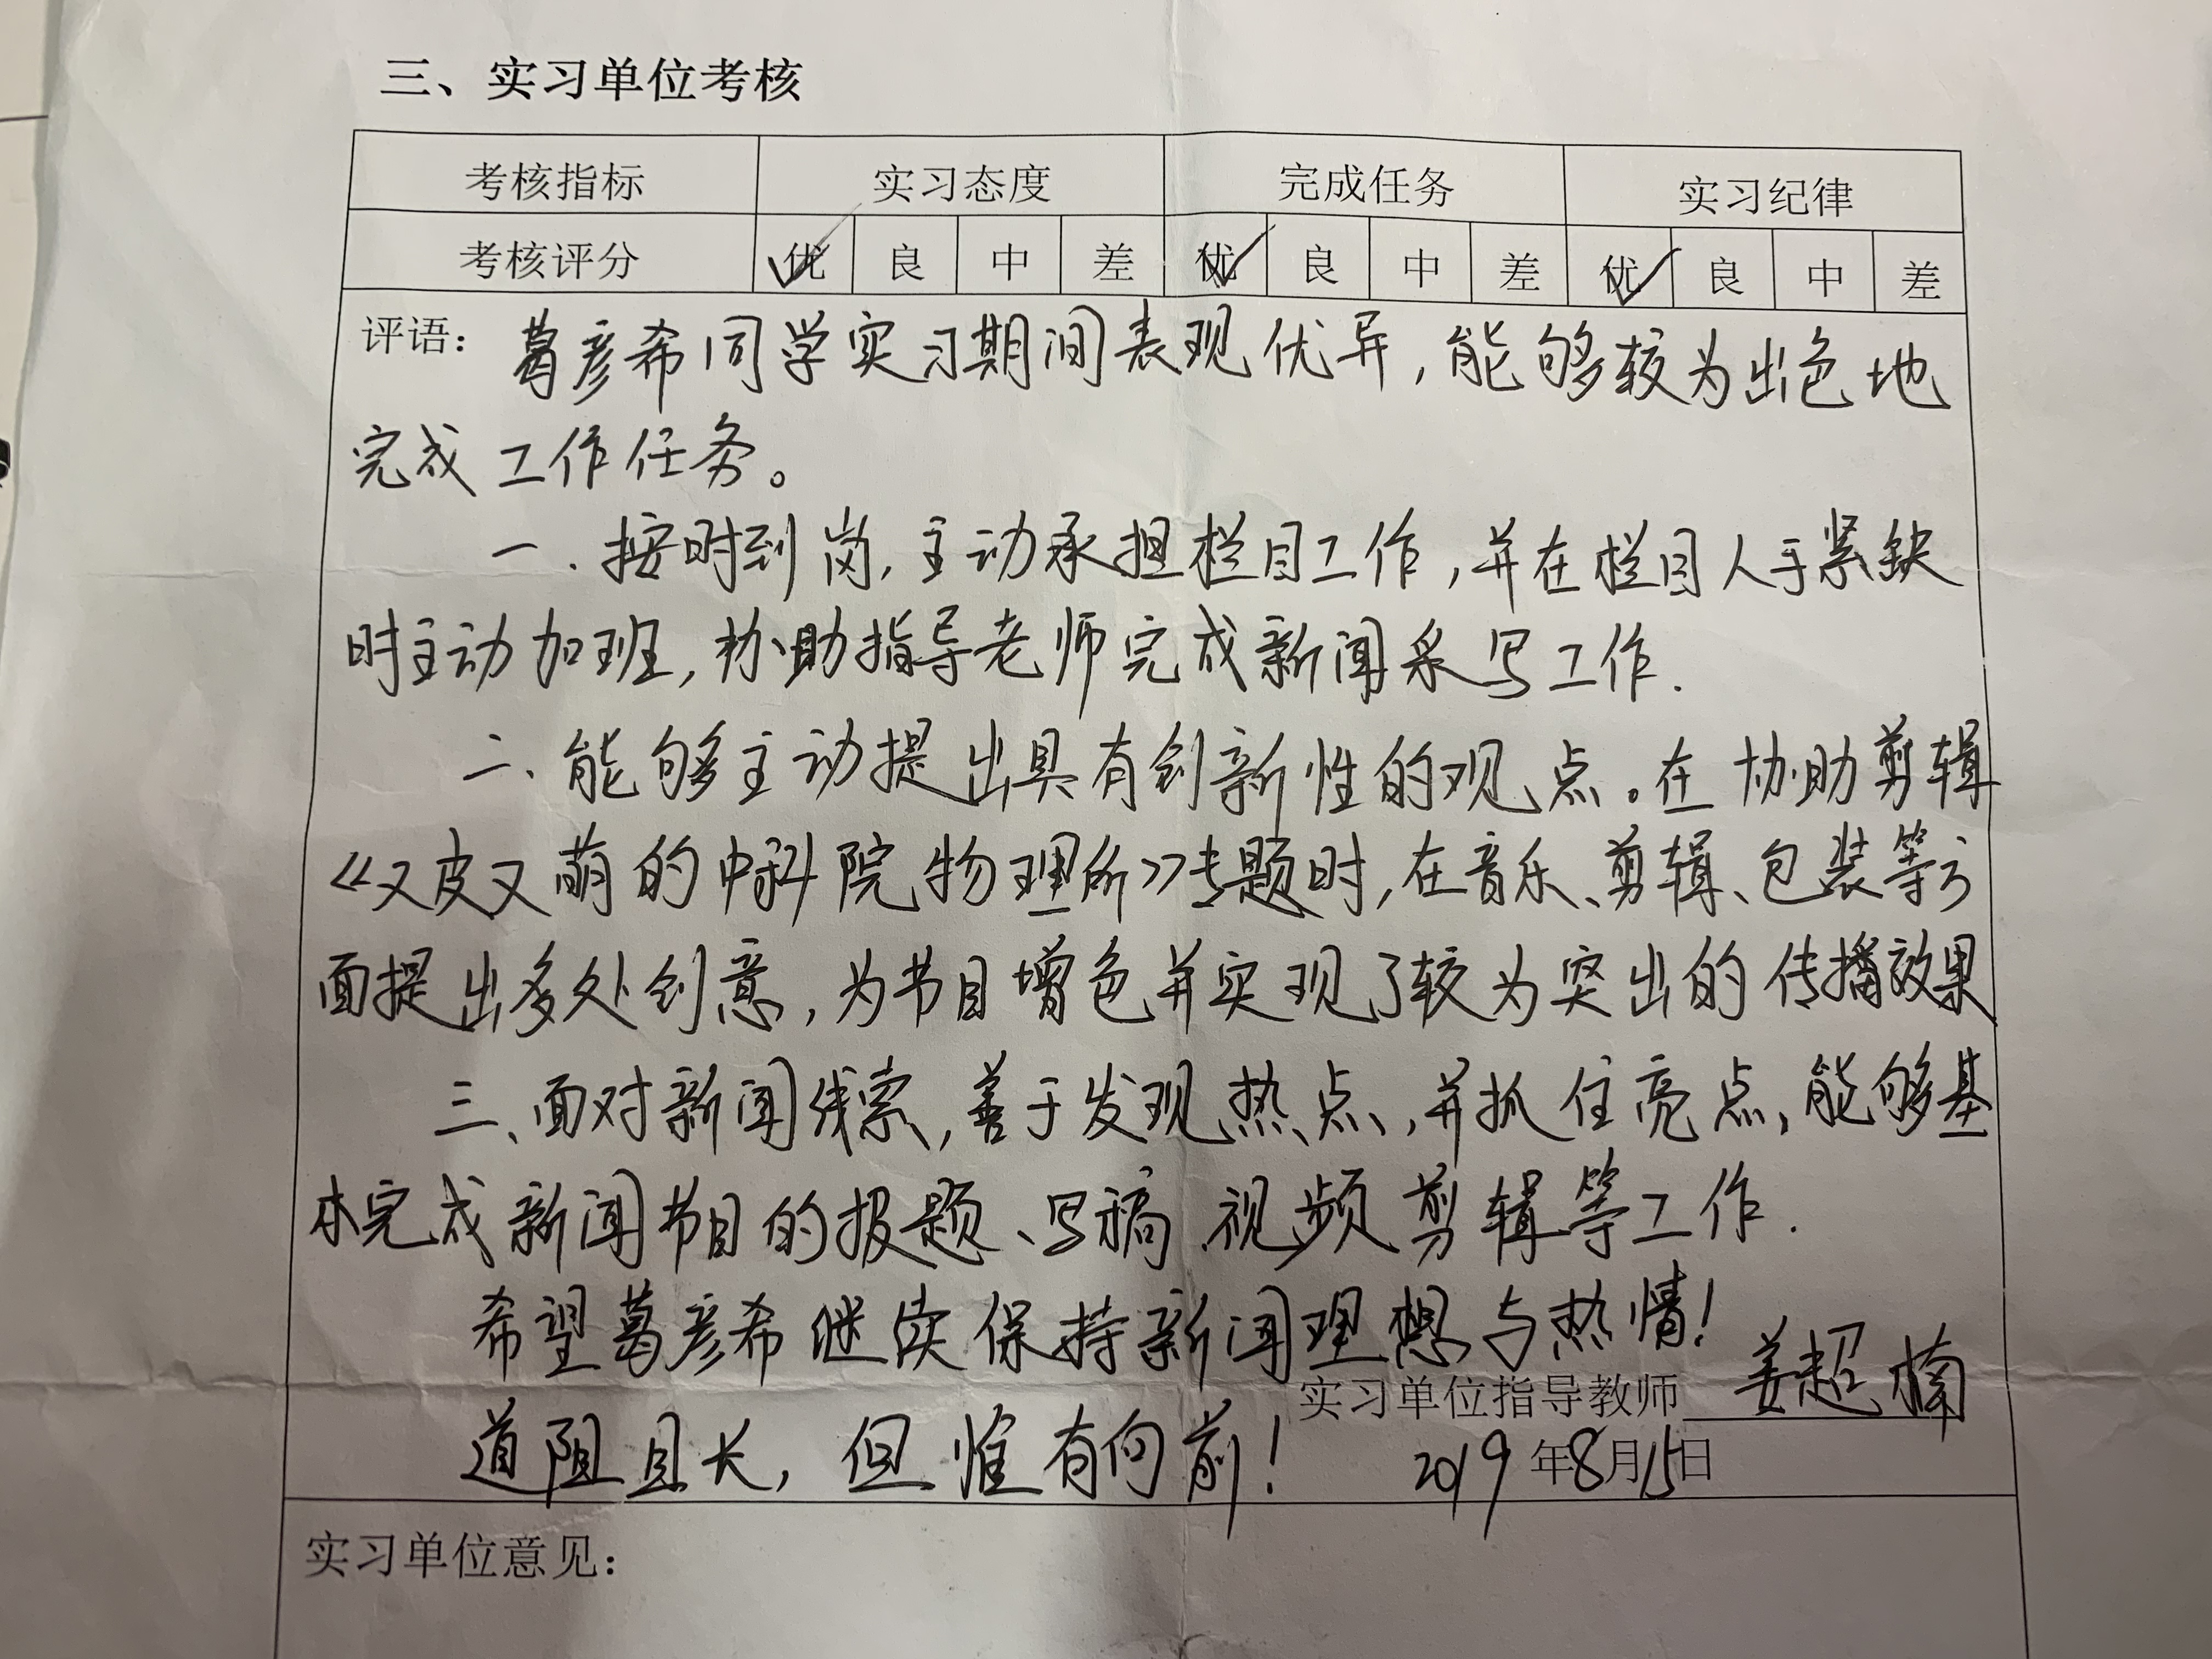 三、实习单位考核
考核指标 实习态度 完成任务 实习纪律
考核评分 优 良 中 差 优 良 中 差 优 良 中 差
评语：葛彦希同学实习期间表现优异，能够较为出色地
完成工作任务。
一．按时到岗，主动承担栏目工作，并在栏目人手紧缺
时主动加班，协助指导老师完成新闻采写工作．
二、能够主动提出具有创新性的观点。在协助剪辑
《又皮又萌的中科院物理所》专题时，在音乐、剪辑、包装等方
面提出多处创意，为节目增色并实现了较为突出的传播效果
三、面对新闻线索，善于发现热点，并抓住亮点，能够基
本完成新闻节目的报题、写稿、视频剪辑等工作．
希望葛彦希继续保持新闻理想与热情！
实习单位指导教师 姜超楠
道阻且长，但惟有向前！
2019年8月15日
实习单位意见：